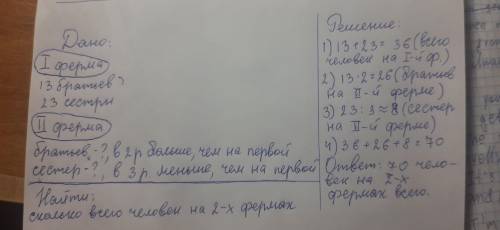 Дано:
I ферма
13 братьев
23 сестры
II ферма
братьев -?, в 2 р больше, чем на первой
сестер -?, в 3 р. меньше, чем на первой
Найти:
сколько всего человек на 2-х фермах
Решение:
1) 13+23= 36 (всего
человек на I-й ф.)
2) 13·2=26 (братьев
на II-й ферме)
3) 23:3≈8 (сестер
на II-й ферме)
4) 36+26+8=70
Ответ: 70 чело-
век на 2-х
фермах всего.